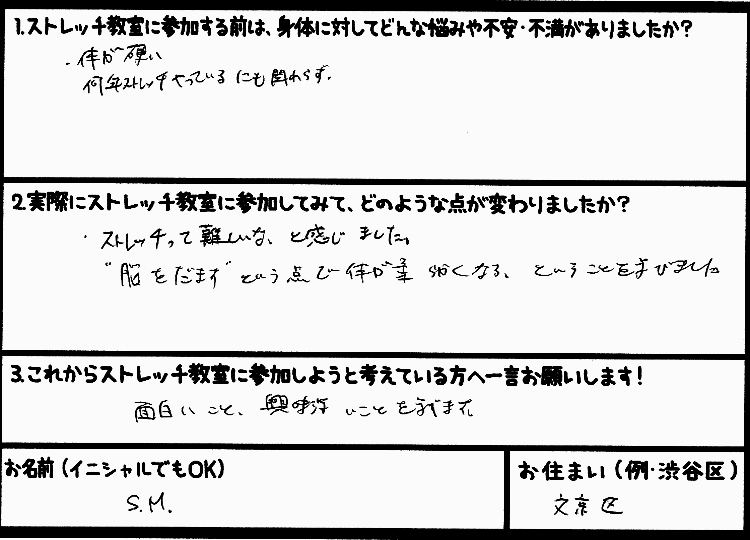 1.ストレッチ教室に参加する前は、身体に対してどんな悩みや不安・不満がありましたか？
・体が硬い
何年ストレッチやっているにも関わらず。
2.実際にストレッチ教室に参加してみて、どのような点が変わりましたか？
・ストレッチって難しいな、と感じました。
"脳をだます"という点で体が柔らかくなる、ということを学びました
3.これからストレッチ教室に参加しようと考えている方へ一言お願いします！
面白いこと、興味深いことを学べます。
お名前（イニシャルでもOK）
S.M.
お住まい（例・渋谷区）
文京区